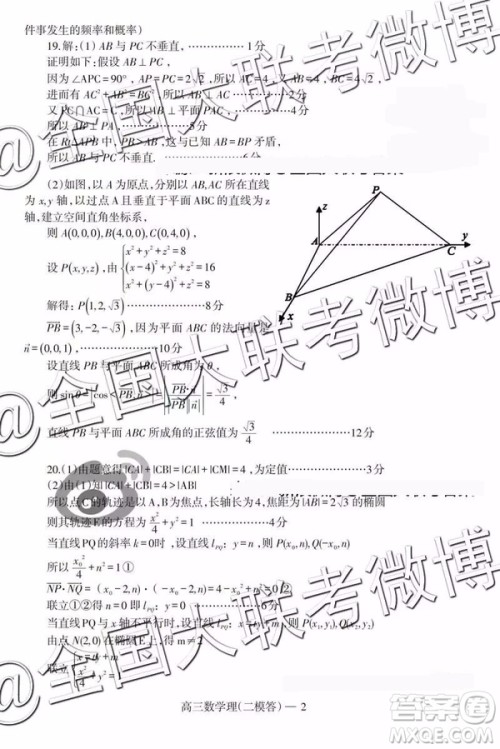 件事发生的频率和概率）
19.解：（1）AB与PC不垂直，……………1分
证明如下：假设AB⊥PC，
因为∠APC=90°，AP=PC=2√2，所以AC=4，
进而有AC²+AB²=BC²，所以AB⊥AC，
又PC∩AC=C，所以AB⊥平面PAC，
所以AB⊥PA，……………5分
在Rt△APB中，PB>AB，这与已知AB=BP矛盾，
所以AB与PC不垂直.……………6分
（2）如图，以A为原点，分别以AB,AC所在直线
为x,y轴，以过点A且垂直于平面ABC的直线为z
轴，建立空间直角坐标系，
则A(0,0,0),B(4,0,0),C(0,4,0)，
设P(x,y,z)，由{x²+y²+z²=8
(x−4)²+y²+z²=16
x²+(y−4)²+z²=8
解得：P(1,2,√3)……………8分
PB=(3,−2,−√3)，因为平面ABC的法向量是
n=(0,0,1)，……………10分
设直线PB与平面ABC所成角为θ，
则sinθ=|cos<PB,n>|=|PB·n/|PB||n||=√3/4，
直线PB与平面ABC所成角的正弦值为√3/4……………12分
z
P
A
y
C
B
x
20.（1）由题意得|CA|+|CB|=|CA|+|CM|=4，为定值……………3分
（2）由（1）知|CA|+|CB|=4>|AB|
所以点C的轨迹是以A,B为焦点，长轴长为4，焦距为|AB|=2√3的椭圆
则其轨迹E的方程为x²/4+y²=1
当直线PQ的斜率k=0时，设直线l_PQ：y=n，则P(x₀,n),Q(−x₀,n)，
所以x₀²/4+n²=1①
NP·NQ=(x₀−2,n)·(−x₀−2,n)=4−x₀²+n²=0②
联立①②得n=0即l_PQ：y=0
当直线PQ与x轴不平行时，设直线l_PQ：x=ty+m，则P(x₁,y₁),Q(x₂,y₂)，
由点N(2,0)在椭圆E上，得m≠2
联立
高三数学理（二模答）— 2
@全国大联考微博
@全国大联考微博
@全国大联考微博
作业帮